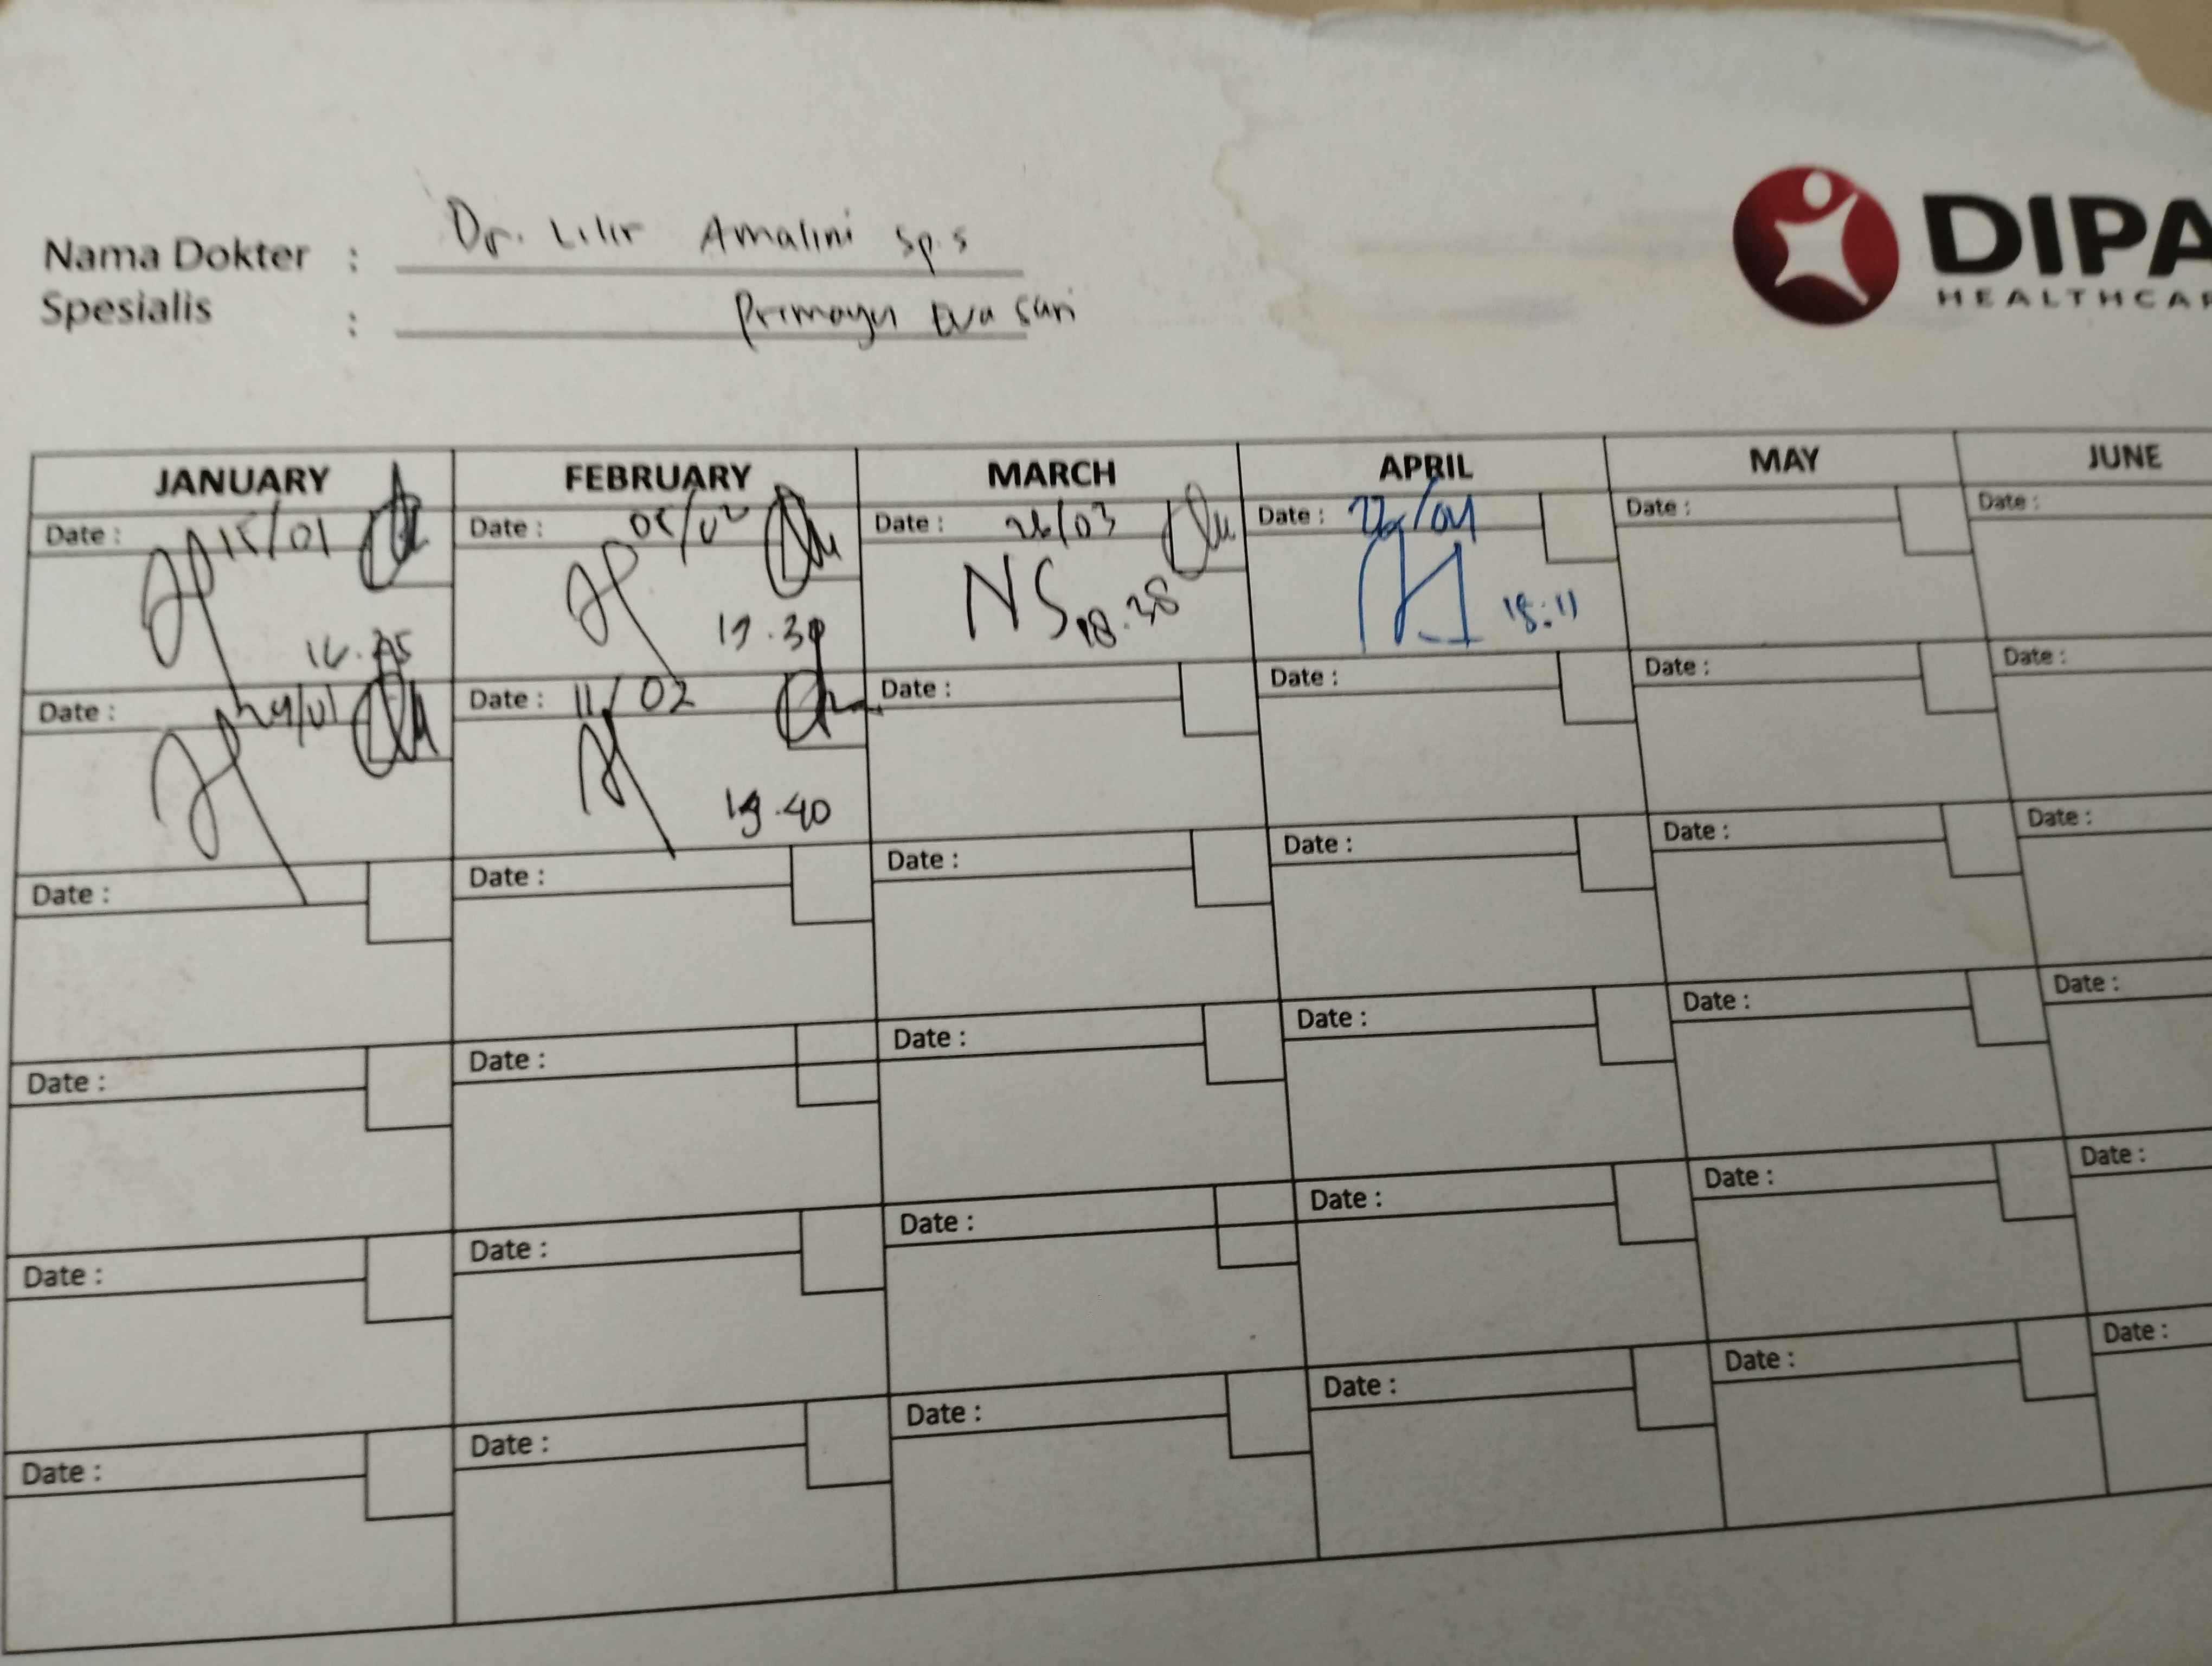 Nama Dokter : Dr. Lilir Amalini sp.s
Spesialis : Primaya Eva Sari
DIPA
HEALTHCAR
JANUARY FEBRUARY MARCH APRIL MAY JUNE
Date : 15/01 Date : 05/02 Date : 26/03 Date : 22/04 Date : Date :
NS 18:11
19.30 18.38
Date : 29/01 Date : 11/02 Date : Date : Date : Date :
19.40
Date : Date : Date : Date : Date : Date :
Date : Date : Date : Date : Date : Date :
Date : Date : Date : Date : Date : Date :
Date : Date : Date : Date : Date : Date :